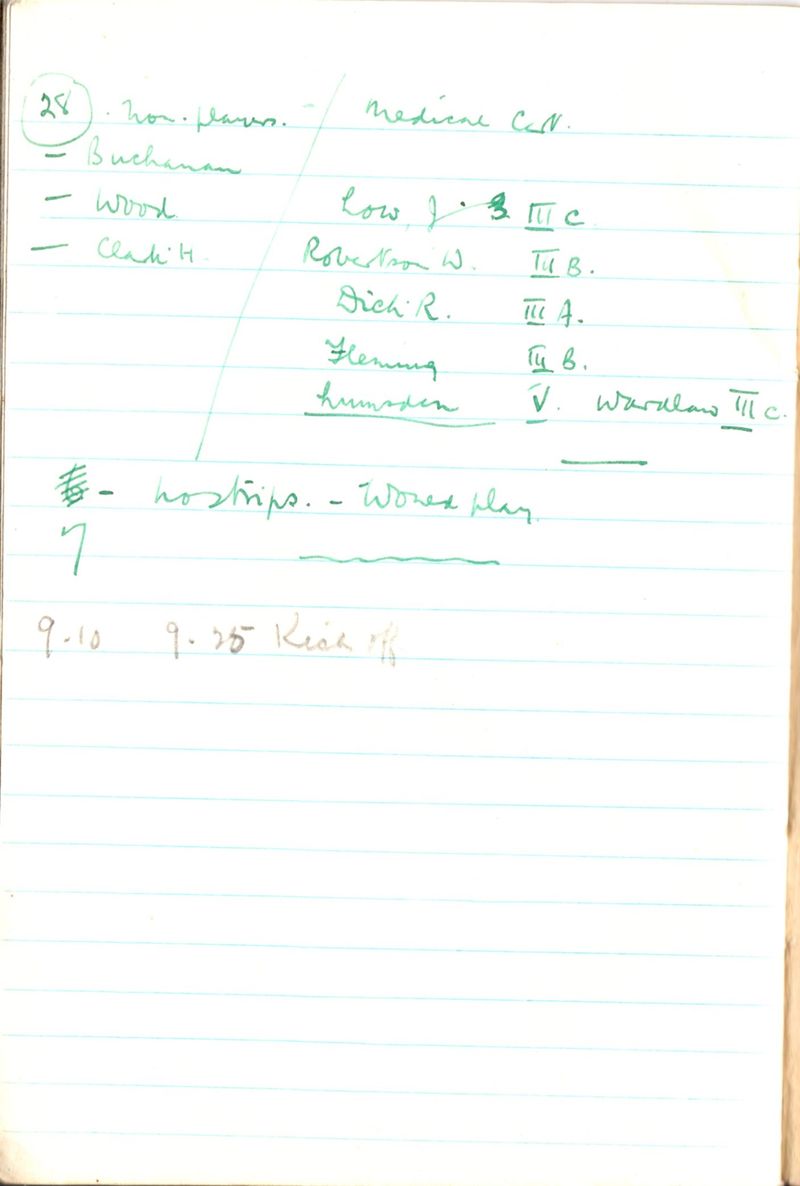 28 . Non-players. - Medical Cert.
- Buchanan
- Wood Low, J. III C
- Clark H Robertson W. III B.
Dick R. III A.
Fleming III B.
Lumsden V. Wardlaw III C.
- no strips. - Would play
7
9.10 9.25 Kick off